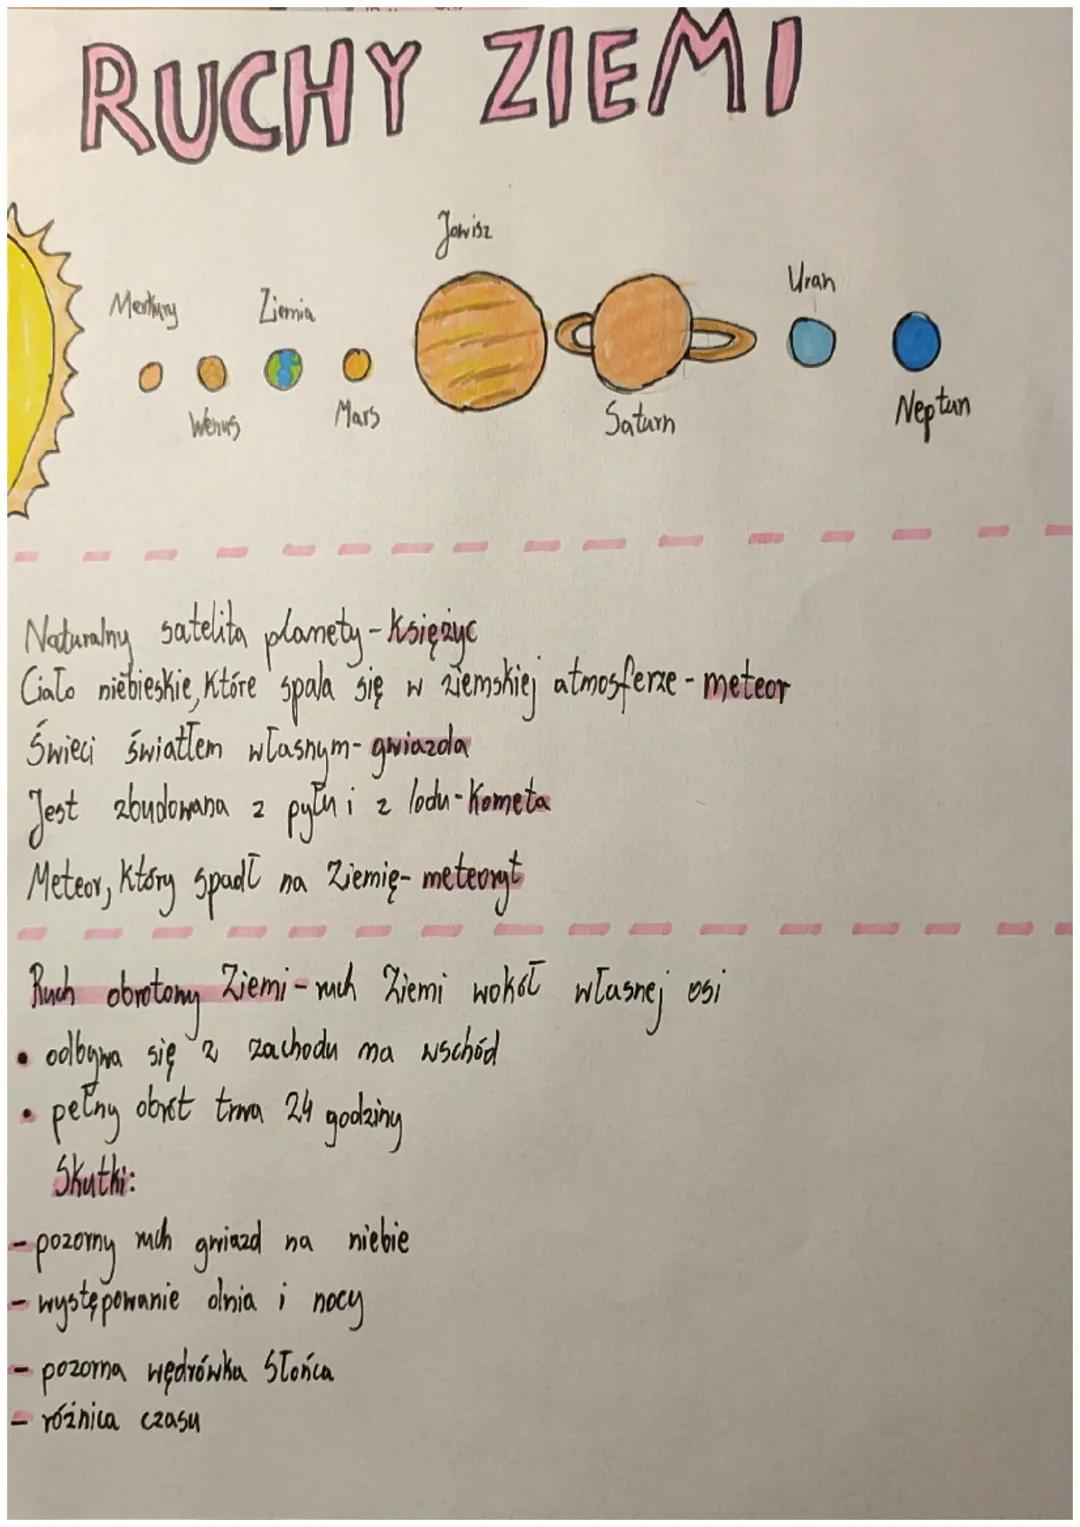 RUCHY ZIEMI
Jowisz
Uran
Merkury
Ziemia
Wenus
Mars
Saturn
Neptun
Naturalny satelita planety - Księżyc
Ciało niebieskie, które spala się w ziemskiej atmosferze - meteor
Świeci światłem własnym - gwiazda
Jest zbudowana z pyłu i z lodu - Kometa
Meteor, który spadł na Ziemię - meteoryt
Ruch obrotowy Ziemi - ruch Ziemi wokół własnej osi
• odbywa się z zachodu na wschód
• pełny obrót trwa 24 godziny
Skutki:
- pozorny ruch gwiazd na niebie
- występowanie dnia i nocy
- pozorna wędrówka Słońca
- różnica czasu